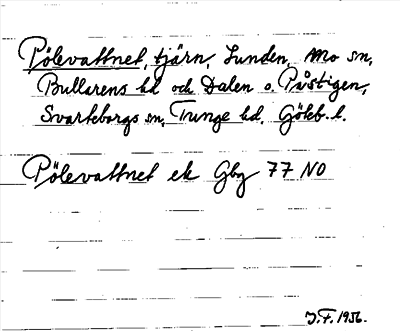 Pölevattnet, tjärn, Lunden, Mo sn,
Bullarens hd och Dalen o. Påstigen,
Svarteborgs sn, Tunge hd, Göteb. l.
Pölevattnet ek Gbg 77 NO
J.F. 1956.